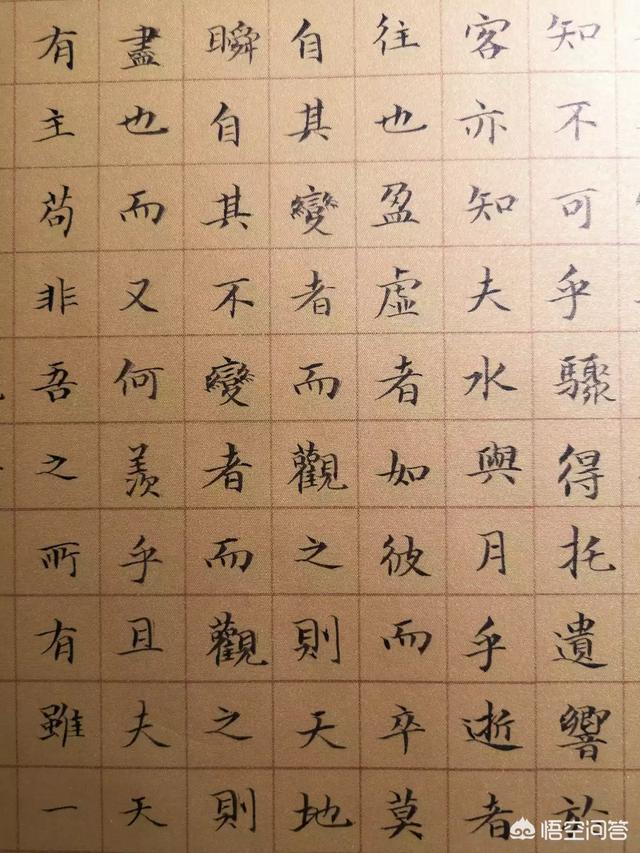 知不可乎驟得托遺響於
客亦知夫水與月乎逝者
往也盈虛者如彼而卒莫
自其變者而觀之則天地
瞬自其不變者而觀之則
盡也而又何羨乎且夫天
有主苟非吾之所有雖一
悟空问答